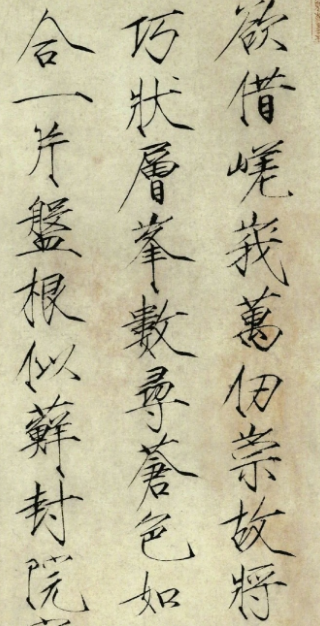 欲借嵯峨萬仞崇故將
巧狀層峯數尋蒼色如
合一片盤根似蘚封院